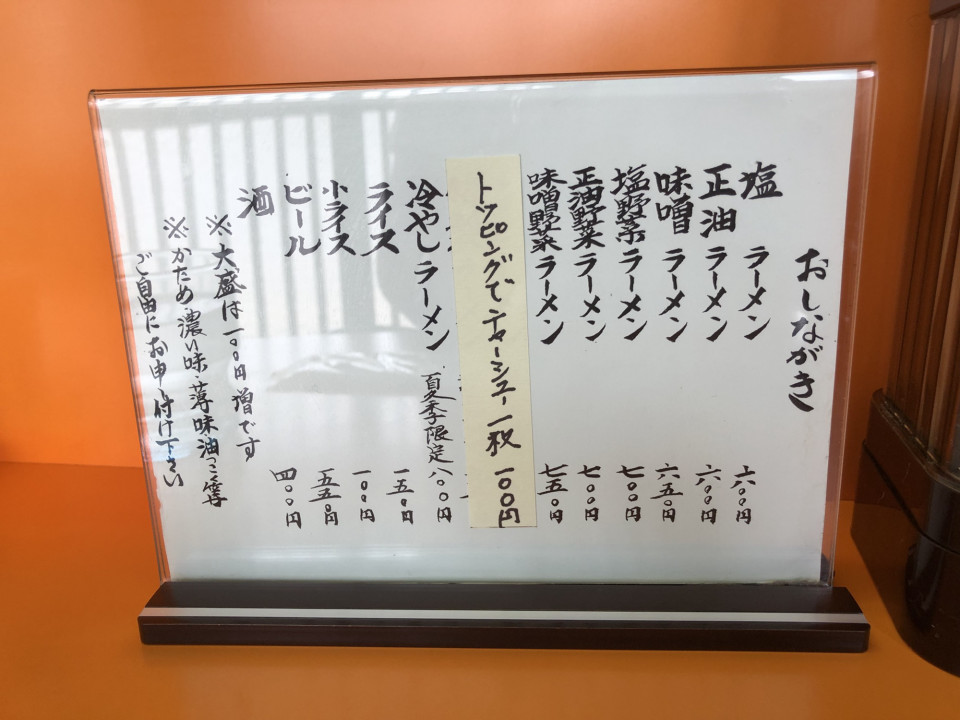 おしながき
塩ラーメン 六〇〇円
正油ラーメン 六〇〇円
味噌ラーメン 六五〇円
塩野菜ラーメン 七〇〇円
正油野菜ラーメン 七〇〇円
味噌野菜ラーメン 七五〇円
トッピングでチャーシュー一枚 一〇〇円
冷やしラーメン 夏季限定 八〇〇円
ライス 一五〇円
小ライス 一〇〇円
ビール 五五〇円
酒 四〇〇円
※大盛は一〇〇円増です
※かため、濃い味・薄味・油っこ等
ご自由にお申し付け下さい